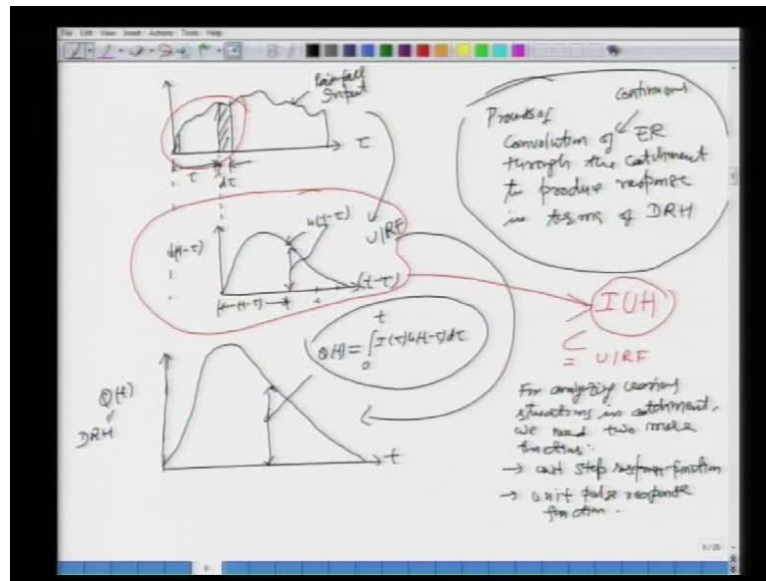 File Edit View Insert Actions Tools Help
Rainfall
Input
τ
τ
dτ
Process of
continuous
Convolution of ER
through the catchment
to produce response
in terms of DRH
u(t-τ)
UIRF
(t-τ)
(t-τ)
t
Q(t) = ∫ I(τ)u(t-τ)dτ
0
IUH
= UIRF
Q(t)
DRH
t
For analyzing various
situations in catchment,
we need two more
functions:
→ unit step response function
→ unit pulse response
function.